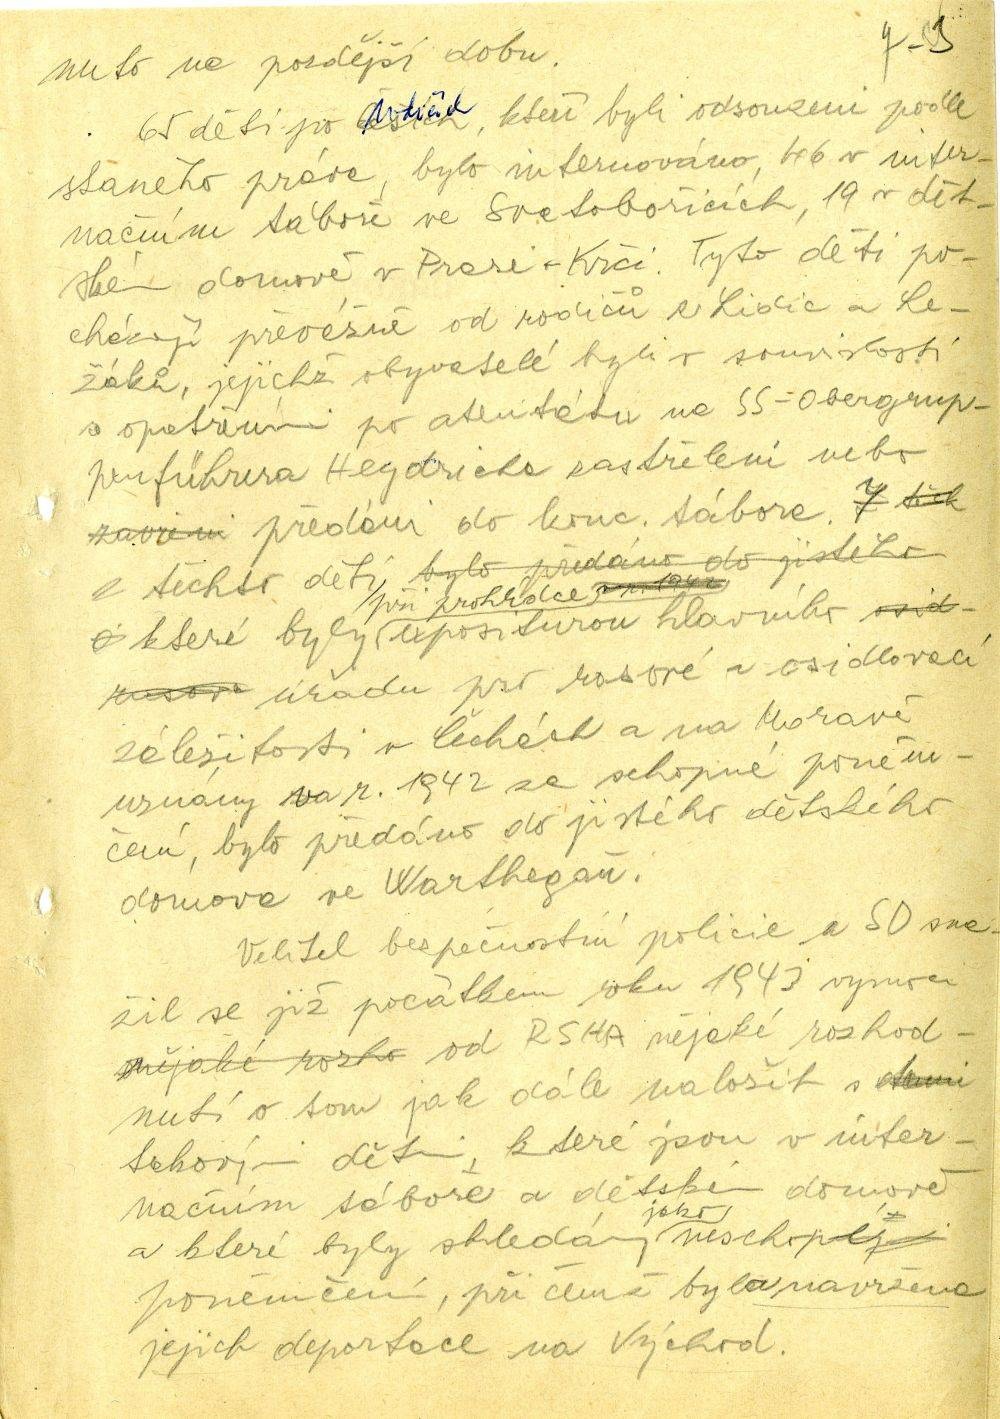 7-3
nuto na pozdější dobu.
65 dětí po rodičích, kteří byli odsouzeni podle
staného práva, bylo internováno, 46 v inter-
načním táboře ve Svatobořicích, 19 v dět-
ském domově v Praze-Krči. Tyto děti po-
cházejí převážně od rodičů z Lidic a Le-
žáků, jejichž obyvatelé byli v souvislosti
s opatřeními po atentátu na SS-Obergrup-
penführera Heydricha zastřeleni nebo
zavřeni předáni do konc. tábora. 7 těch
z těchto dětí, bylo předáno do jistého
při prohlídce v r. 1942
které byly expositurou hlavního osid-
rasové úřadu pro rasové a osidlovací
záležitosti v Čechách a na Moravě
uznány v r. 1942 za schopné poněm-
čení, bylo předáno do jistého dětského
domova ve Warthegau.
Velitel bezpečnostní policie a SD sna-
žil se již počátkem roku 1943 vymoci
nějaké rozho od RSHA nějaké rozhod-
nutí o tom jak dále naložit s těmi
takovými dětmi, které jsou v inter-
načním táboře a dětském domově
jako
a které byly shledány neschopné
poněmčení, při čemž byla navržena
jejich deportace na Východ.